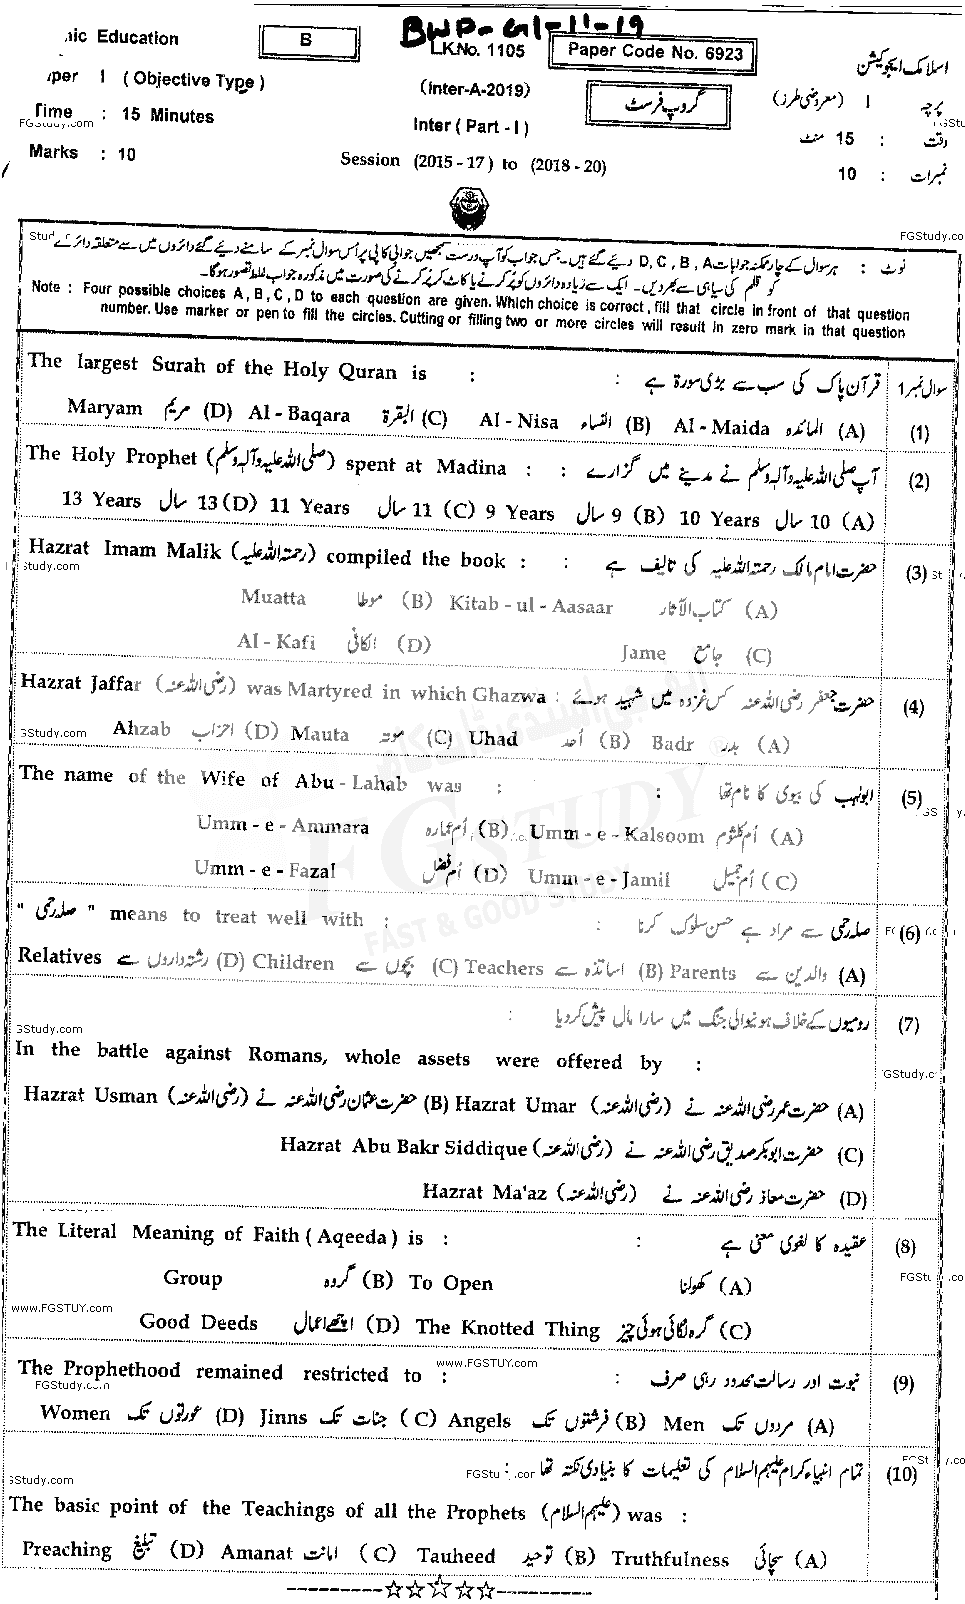 BWP-G1-11-19
nic Education B L.K.No. 1105 Paper Code No. 6923 اسلامک ایجوکیشن
per I ( Objective Type ) (Inter-A-2019) گروپ فرسٹ پرچہ I (معروضی طرز)
Time : 15 Minutes Inter ( Part - I ) وقت : 15 منٹ
FGStudy.com FGStu
Marks : 10 Session (2015 - 17) to (2018 - 20) نمبرات : 10
Stud FGStudy.co
نوٹ : ہر سوال کے چار ممکنہ جوابات D, C, B, A دیئے گئے ہیں۔ جس جواب کو آپ درست سمجھیں جوابی کاپی پر اُس سوال نمبر کے سامنے دیئے گئے دائروں میں سے متعلقہ دائرے
کو قلم کی سیاہی سے بھر دیں۔ ایک سے زیادہ دائروں کو پُر کرنے یا کاٹ کر پُر کرنے کی صورت میں مذکورہ جواب غلط تصور ہوگا۔
Note : Four possible choices A, B, C, D to each question are given. Which choice is correct, fill that circle in front of that question
number. Use marker or pen to fill the circles. Cutting or filling two or more circles will result in zero mark in that question
The largest Surah of the Holy Quran is : : قرآن پاک کی سب سے بڑی سورۃ ہے سوال نمبر 1
Maryam مریم (D) Al - Baqara البقرۃ (C) Al - Nisa النساء (B) Al - Maida المائدہ (A) (1)
The Holy Prophet (صلی اللہ علیہ وآلہ وسلم) spent at Madina : : آپ صلی اللہ علیہ وآلہ وسلم نے مدینے میں گزارے (2)
13 Years 13 سال (D) 11 Years 11 سال (C) 9 Years 9 سال (B) 10 Years 10 سال (A)
Hazrat Imam Malik (رحمتہ اللہ علیہ) compiled the book : : حضرت امام مالک رحمتہ اللہ علیہ کی تالیف ہے (3)
Study.com St
Muatta موطا (B) Kitab - ul - Aasaar کتاب الآثار (A)
Al - Kafi الکافی (D) Jame جامع (C)
Hazrat Jaffar (رضی اللہ عنہ) was Martyred in which Ghazwa : حضرت جعفر رضی اللہ عنہ کس غزوہ میں شہید ہوئے (4)
GStudy.com
Ahzab احزاب (D) Mauta موتہ (C) Uhad اُحد (B) Badr بدر (A)
The name of the Wife of Abu - Lahab was : : ابولہب کی بیوی کا نام تھا (5)
Umm - e - Ammara اُم عمارہ (B) Umm - e - Kalsoom اُم کلثوم (A)
FG STUDY
Umm - e - Fazal اُم فضل (D) Umm - e - Jamil اُم جمیل (C)
FAST & GOOD STUDY
" صلہ رحمی " means to treat well with : : صلہ رحمی سے مراد ہے حسن سلوک کرنا (6)
Relatives رشتہ داروں سے (D) Children بچوں سے (C) Teachers اساتذہ سے (B) Parents والدین سے (A)
: رومیوں کے خلاف ہونیوالی جنگ میں سارا مال پیش کر دیا (7)
GStudy.com
In the battle against Romans, whole assets were offered by :
GStudy.c
Hazrat Usman (رضی اللہ عنہ) حضرت عثمان رضی اللہ عنہ نے (B) Hazrat Umar (رضی اللہ عنہ) حضرت عمر رضی اللہ عنہ نے (A)
Hazrat Abu Bakr Siddique (رضی اللہ عنہ) حضرت ابوبکر صدیق رضی اللہ عنہ نے (C)
Hazrat Ma'az (رضی اللہ عنہ) حضرت معاذ رضی اللہ عنہ نے (D)
The Literal Meaning of Faith ( Aqeeda ) is : : عقیدہ کا لغوی معنی ہے (8)
Group گروہ (B) To Open کھولنا (A)
FGStu .co
www.FGSTUY.com
Good Deeds اچھے اعمال (D) The Knotted Thing گرہ لگائی ہوئی چیز (C)
www.FGSTUY.com
The Prophethood remained restricted to : : نبوت اور رسالت محدود رہی صرف (9)
FGStudy.com
Women عورتوں تک (D) Jinns جنات تک (C) Angels فرشتوں تک (B) Men مردوں تک (A)
GStudy.com FGStu .cor : تمام انبیاء کرام علیہم السلام کی تعلیمات کا بنیادی نکتہ تھا (10)
The basic point of the Teachings of all the Prophets (علیہم السلام) was :
Preaching تبلیغ (D) Amanat امانت (C) Tauheed توحید (B) Truthfulness سچائی (A)